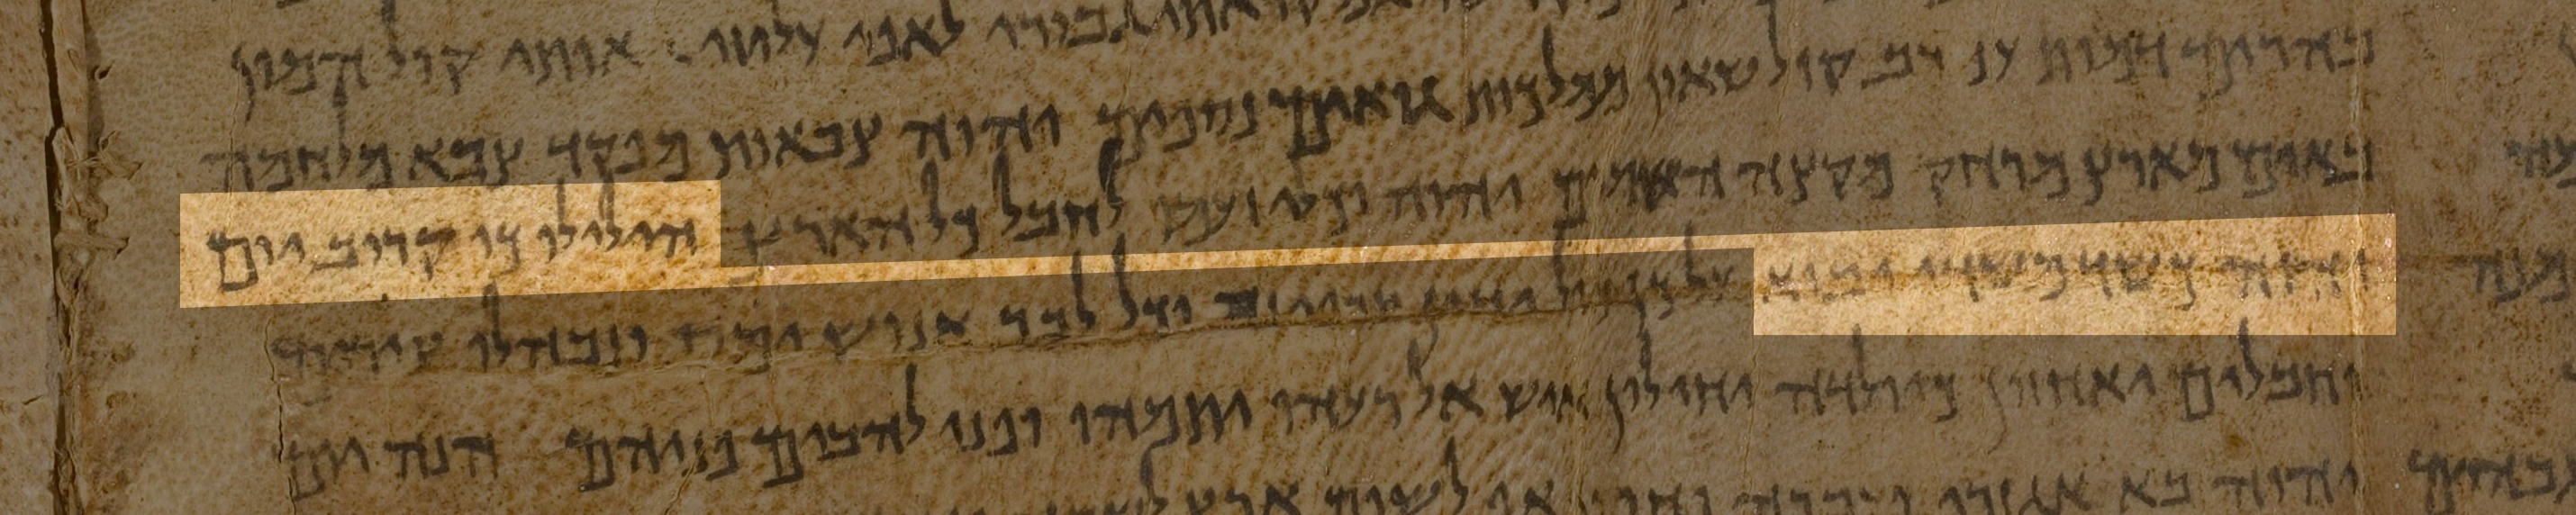 גבורי לאפי עליזי אותי קול המון
בהרים דמות עם רב קול שאון ממלכות גואים נאספים יהוה צבאות מפקד צבא מלחמה
באים מארץ מרחק מקצה השמים יהוה וכלי זעמו לחבל כל הארץ הילילו כי קרוב יום
יהוה כשד משדי יבוא על כן כול ידים תרפינה וכל לבב אנוש ימס ונבהלו צירים
וחבלים יאחזון כיולדה יחילון איש אל רעהו יתמהו ופני להבים פניהם הנה יום
יהוה בא אכזרי ועברה וחרון אף לשום ארץ